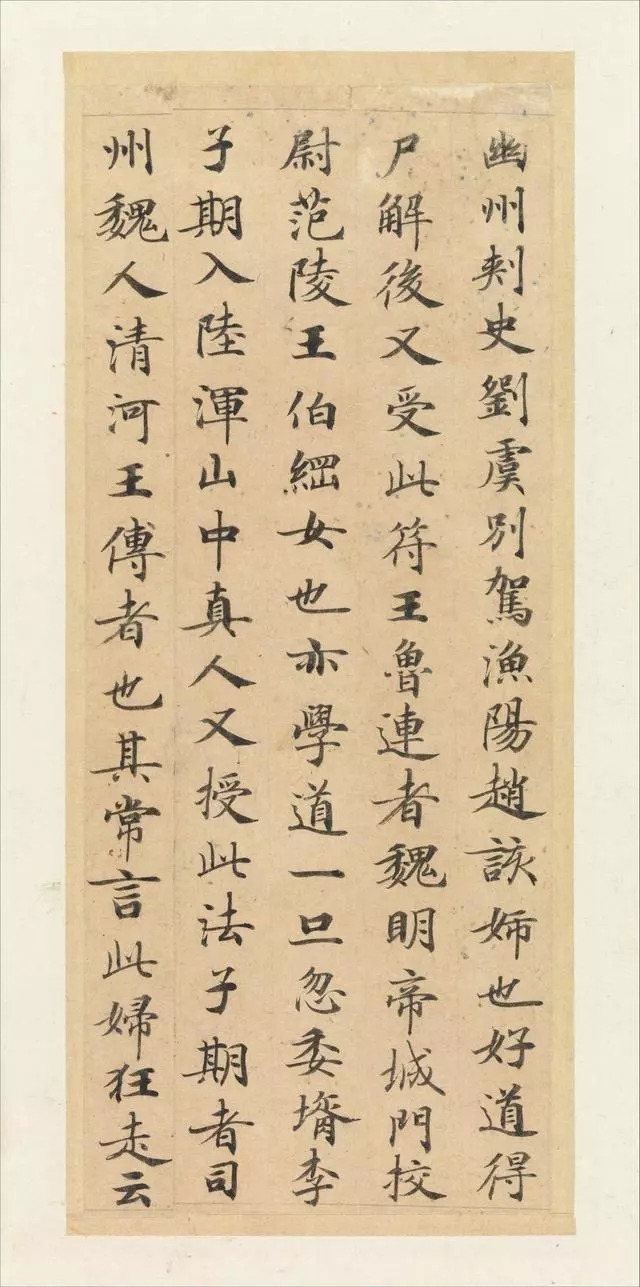 幽州刾史劉虞別駕漁陽趙該姉也好道得
尸解後又受此符王魯連者魏明帝城門挍
尉范陵王伯綱女也亦學道一旦忽委壻李
子期入陸渾山中真人又授此法子期者司
州魏人清河王傅者也其常言此婦狂走云